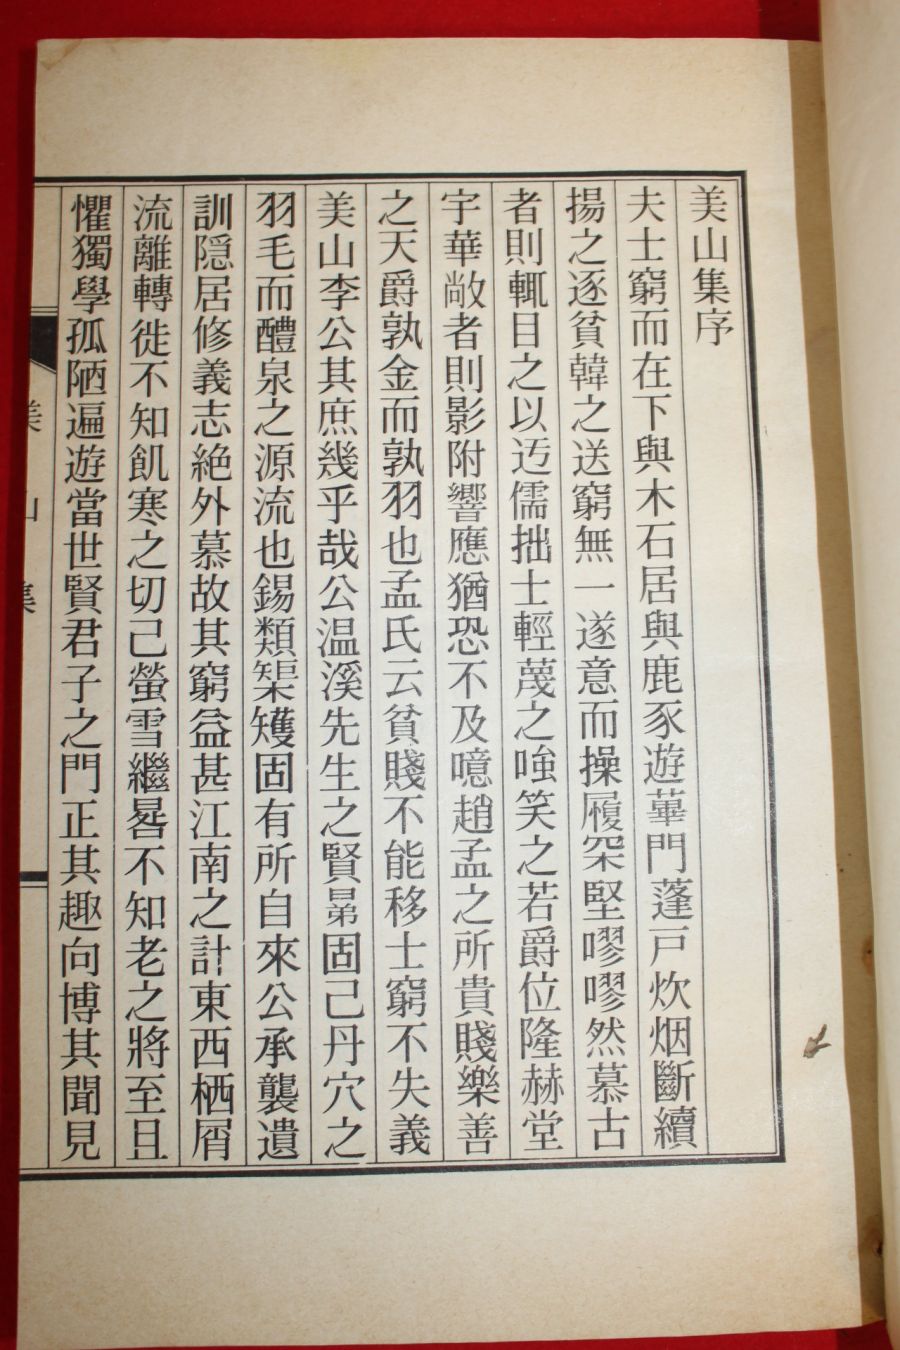 美山集序
夫士窮而在下與木石居與鹿豕遊蓽門蓬戸炊烟斷續
揚之逐貧韓之送窮無一遂意而操履罙堅嘐嘐然慕古
者則輒目之以迃儒拙士輕蔑之嗤笑之若爵位隆赫堂
宇華敞者則影附響應猶恐不及噫趙孟之所貴賤樂善
之天爵孰金而孰羽也孟氏云貧賤不能移士窮不失義
美山李公其庶幾乎哉公温溪先生之賢曻固己丹穴之
羽毛而醴泉之源流也錫類榘矱固有所自來公承襲遺
訓隠居修義志絶外慕故其窮益甚江南之計東西栖屑
流離轉徙不知飢寒之切己螢雪繼晷不知老之將至且
懼獨學孤陋遍遊當世賢君子之門正其趣向博其聞見
美山集